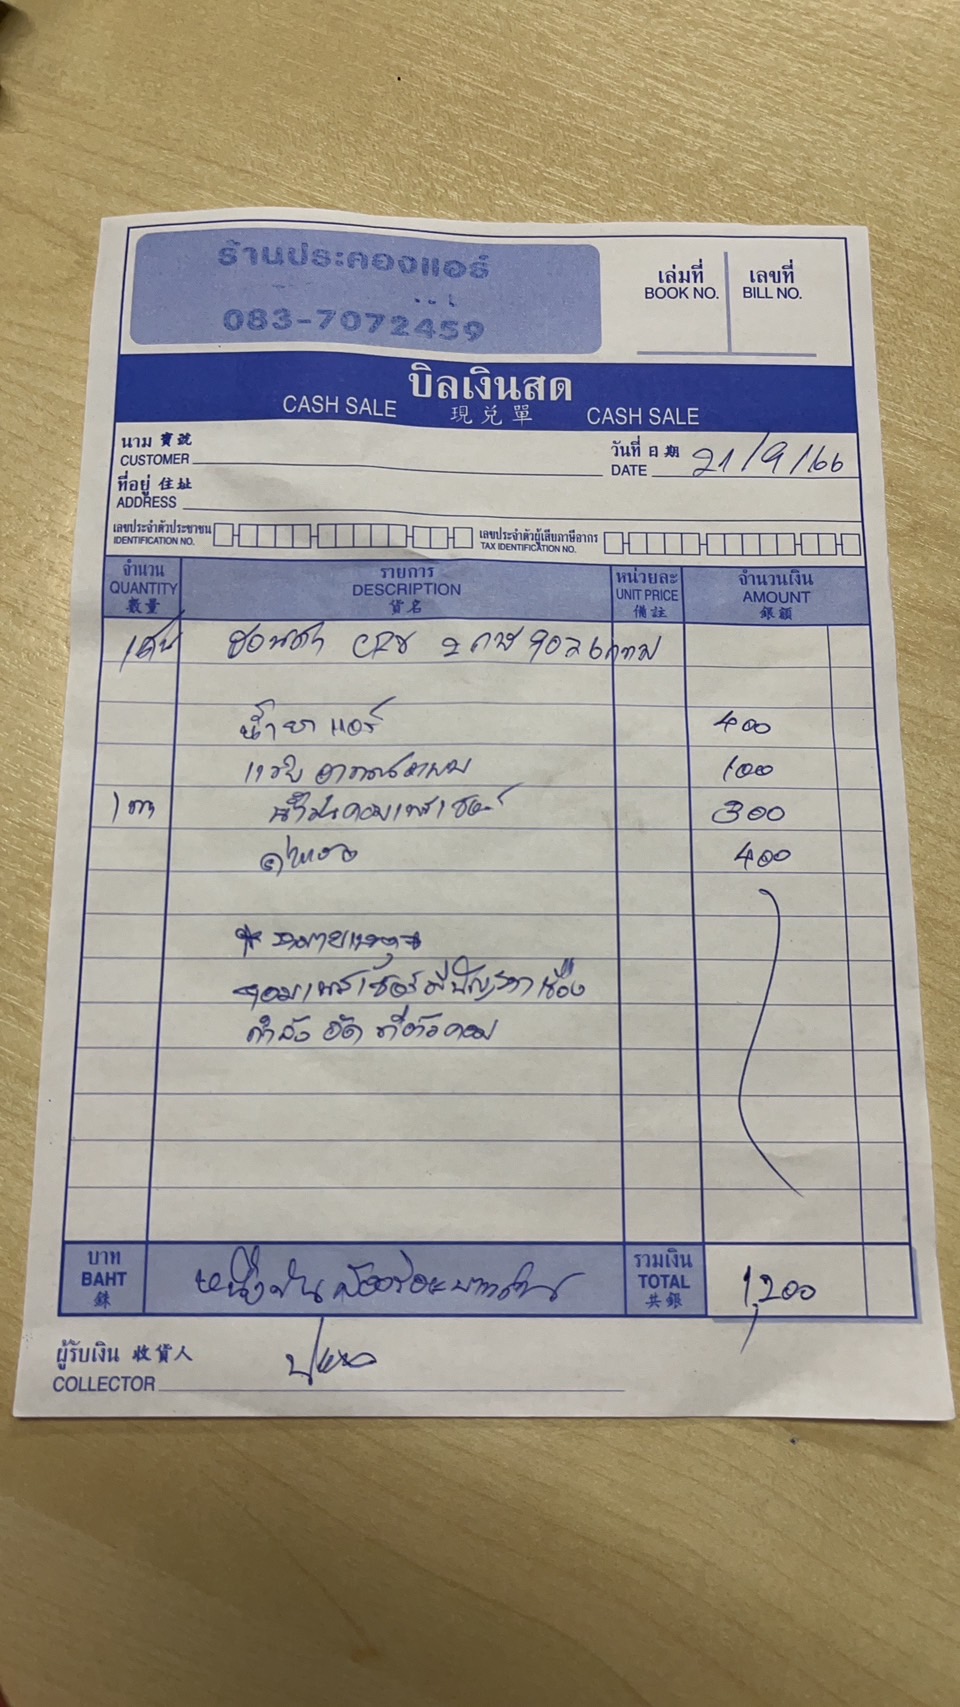 ร้านประคองแอร์
083-7072459
เล่มที่
BOOK NO.
เลขที่
BILL NO.
บิลเงินสด
CASH SALE 現兑單 CASH SALE
นาม 寶號
CUSTOMER
วันที่ 日期
DATE 21/9/66
ที่อยู่ 住址
ADDRESS
เลขประจำตัวประชาชน
IDENTIFICATION NO.
เลขประจำตัวผู้เสียภาษีอากร
TAX IDENTIFICATION NO.
จำนวน
QUANTITY
數量
รายการ
DESCRIPTION
貨名
หน่วยละ
UNIT PRICE
備註
จำนวนเงิน
AMOUNT
銀額
ฮอนด้า 2 กฬ 9026 กทม
น้ำยาแอร์ 400
100
น้ำมันคอมเพรสเซอร์ 300
ค่าแรง 400
*หมายเหตุ*
คอมเพรสเซอร์มีปัญหาเรื่อง
กำลังอัด ที่ตัวคอม
บาท
BAHT
銖
หนึ่งพันสองร้อยบาทถ้วน
รวมเงิน
TOTAL
共銀
1,200
ผู้รับเงิน 收貨人
COLLECTOR